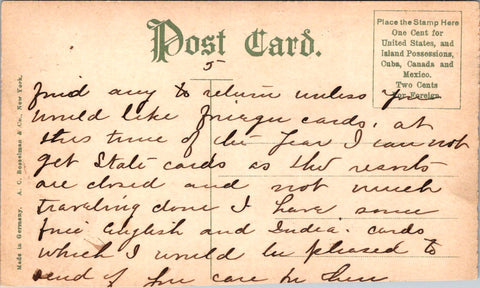 Post Card.
Place the Stamp Here
One Cent for
United States, and
Island Possessions,
Cuba, Canada and
Mexico.
Two Cents
for Foreign.
5
find any to return unless you
would like foreign cards. at
this time of the year I can not
get State cards as the resorts
are closed and not much
traveling done I have some
fine English and India. cards
which I would be pleased to
send if you care for
Made in Germany. A. C. Bosselman & Co., New York.